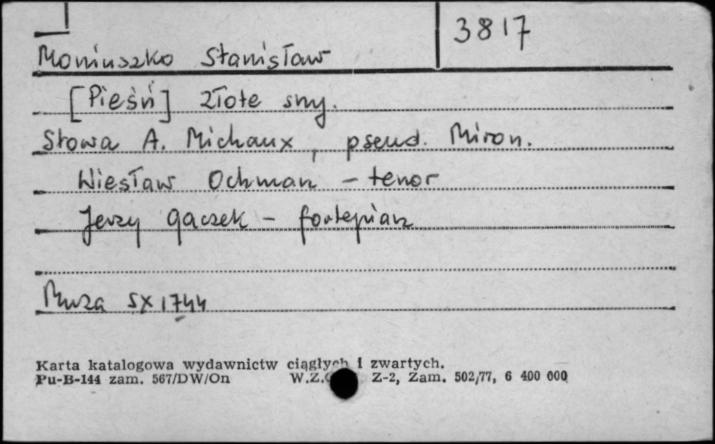 3817
Moniuszko Stanisław
[Pieśń] Złote sny.
Słowa A. Michaux, pseud. Miron.
Wiesław Ochman - tenor
Jerzy Gaczek - fortepian
Muza SX 1744
Karta katalogowa wydawnictw ciągłych i zwartych.
Pu-B-144 zam. 567/DW/On W.Z. Z-2, Zam. 502/77, 6 400 000